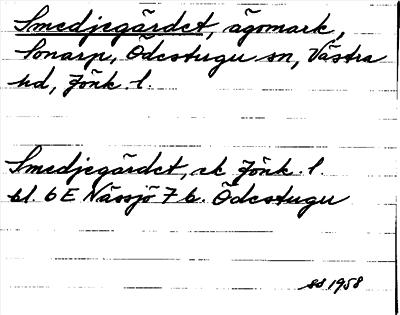 Smedjegärdet, ägomark,
Sonarp, Ödestugu sn, Västra
hd, Jönk. l.
Smedjegärdet, ek Jönk. l.
bl. 6E Nässjö 7 b. Ödestugu
sd 1958